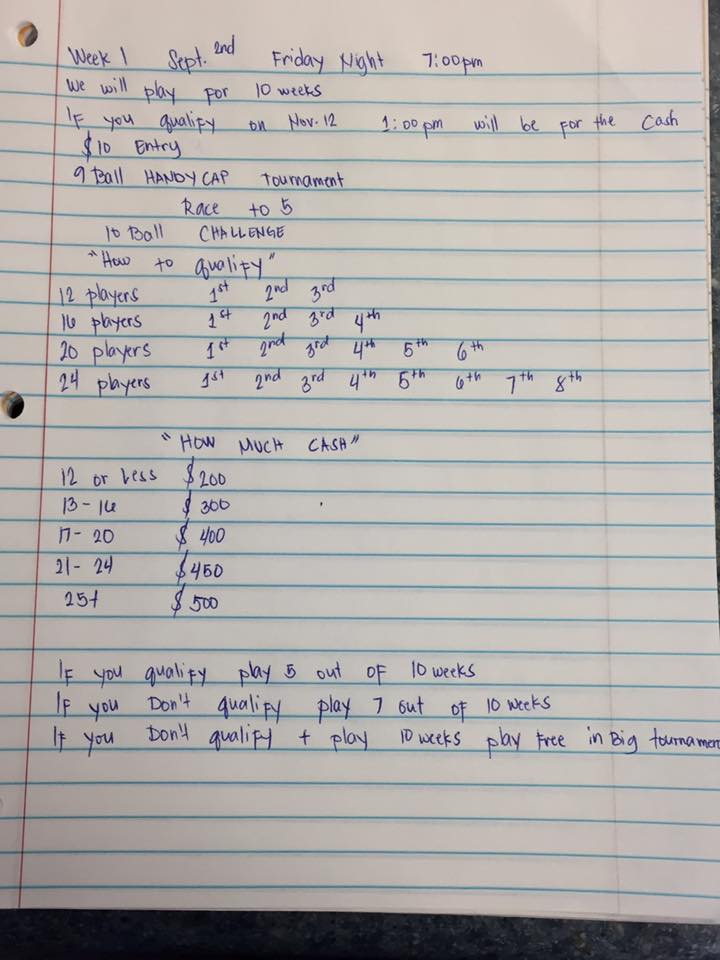 Week 1 Sept. 2nd Friday Night 7:00pm
We will play for 10 weeks
If you qualify on Nov. 12 1:00pm will be for the cash
$10 Entry
9 Ball HANDYCAP Tournament
Race to 5
10 Ball CHALLENGE
"How to qualify"
12 players 1st 2nd 3rd
16 players 1st 2nd 3rd 4th
20 players 1st 2nd 3rd 4th 5th 6th
24 players 1st 2nd 3rd 4th 5th 6th 7th 8th
"HOW MUCH CASH"
12 or Less $200
13-16 $300
17-20 $400
21-24 $450
25+ $500
If you qualify play 5 out of 10 weeks
If you Don't qualify play 7 out of 10 weeks
If you Don't qualify + play 10 weeks play Free in Big tournamen